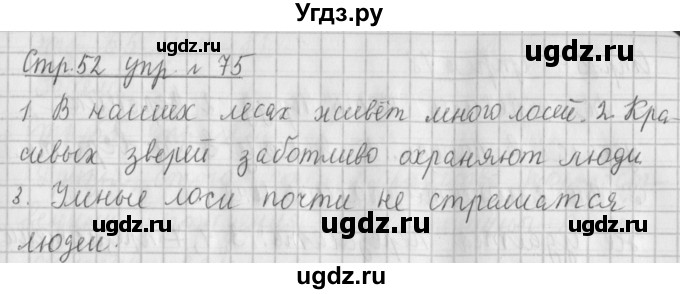 Угдз.ру
ugdz.ru ugdz.ru
Стр. 52 упр. № 75
ugdz.ru
1. В наших лесах живёт много лосей. 2. Кра-
сивых зверей заботливо охраняют люди
3. Умные лоси почти не страшатся
ugdz.ru ugdz.ru
людей.
ugdz.ru
ugdz.ru